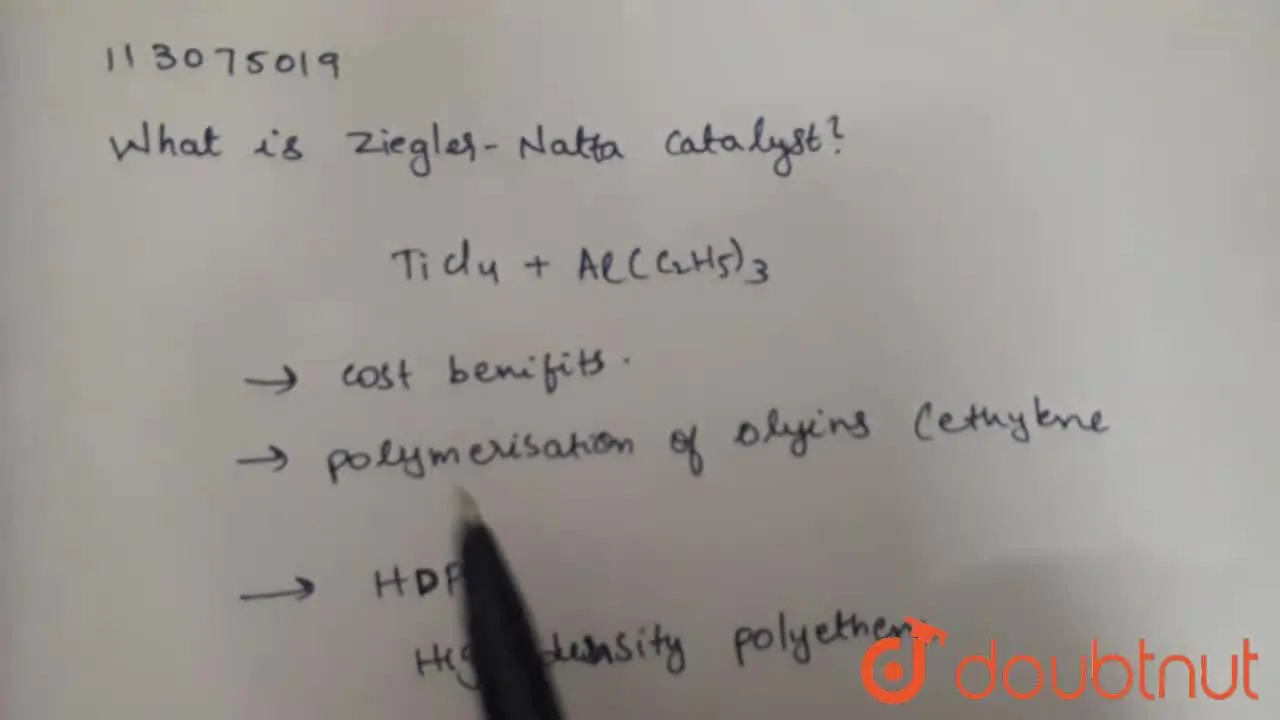 113075019
What is Ziegler-Natta catalyst?
TiCl4 + Al(C2H5)3
→ cost benifits.
→ polymerisation of olyins (ethylene
→ HDP
density polyethen
doubtnut